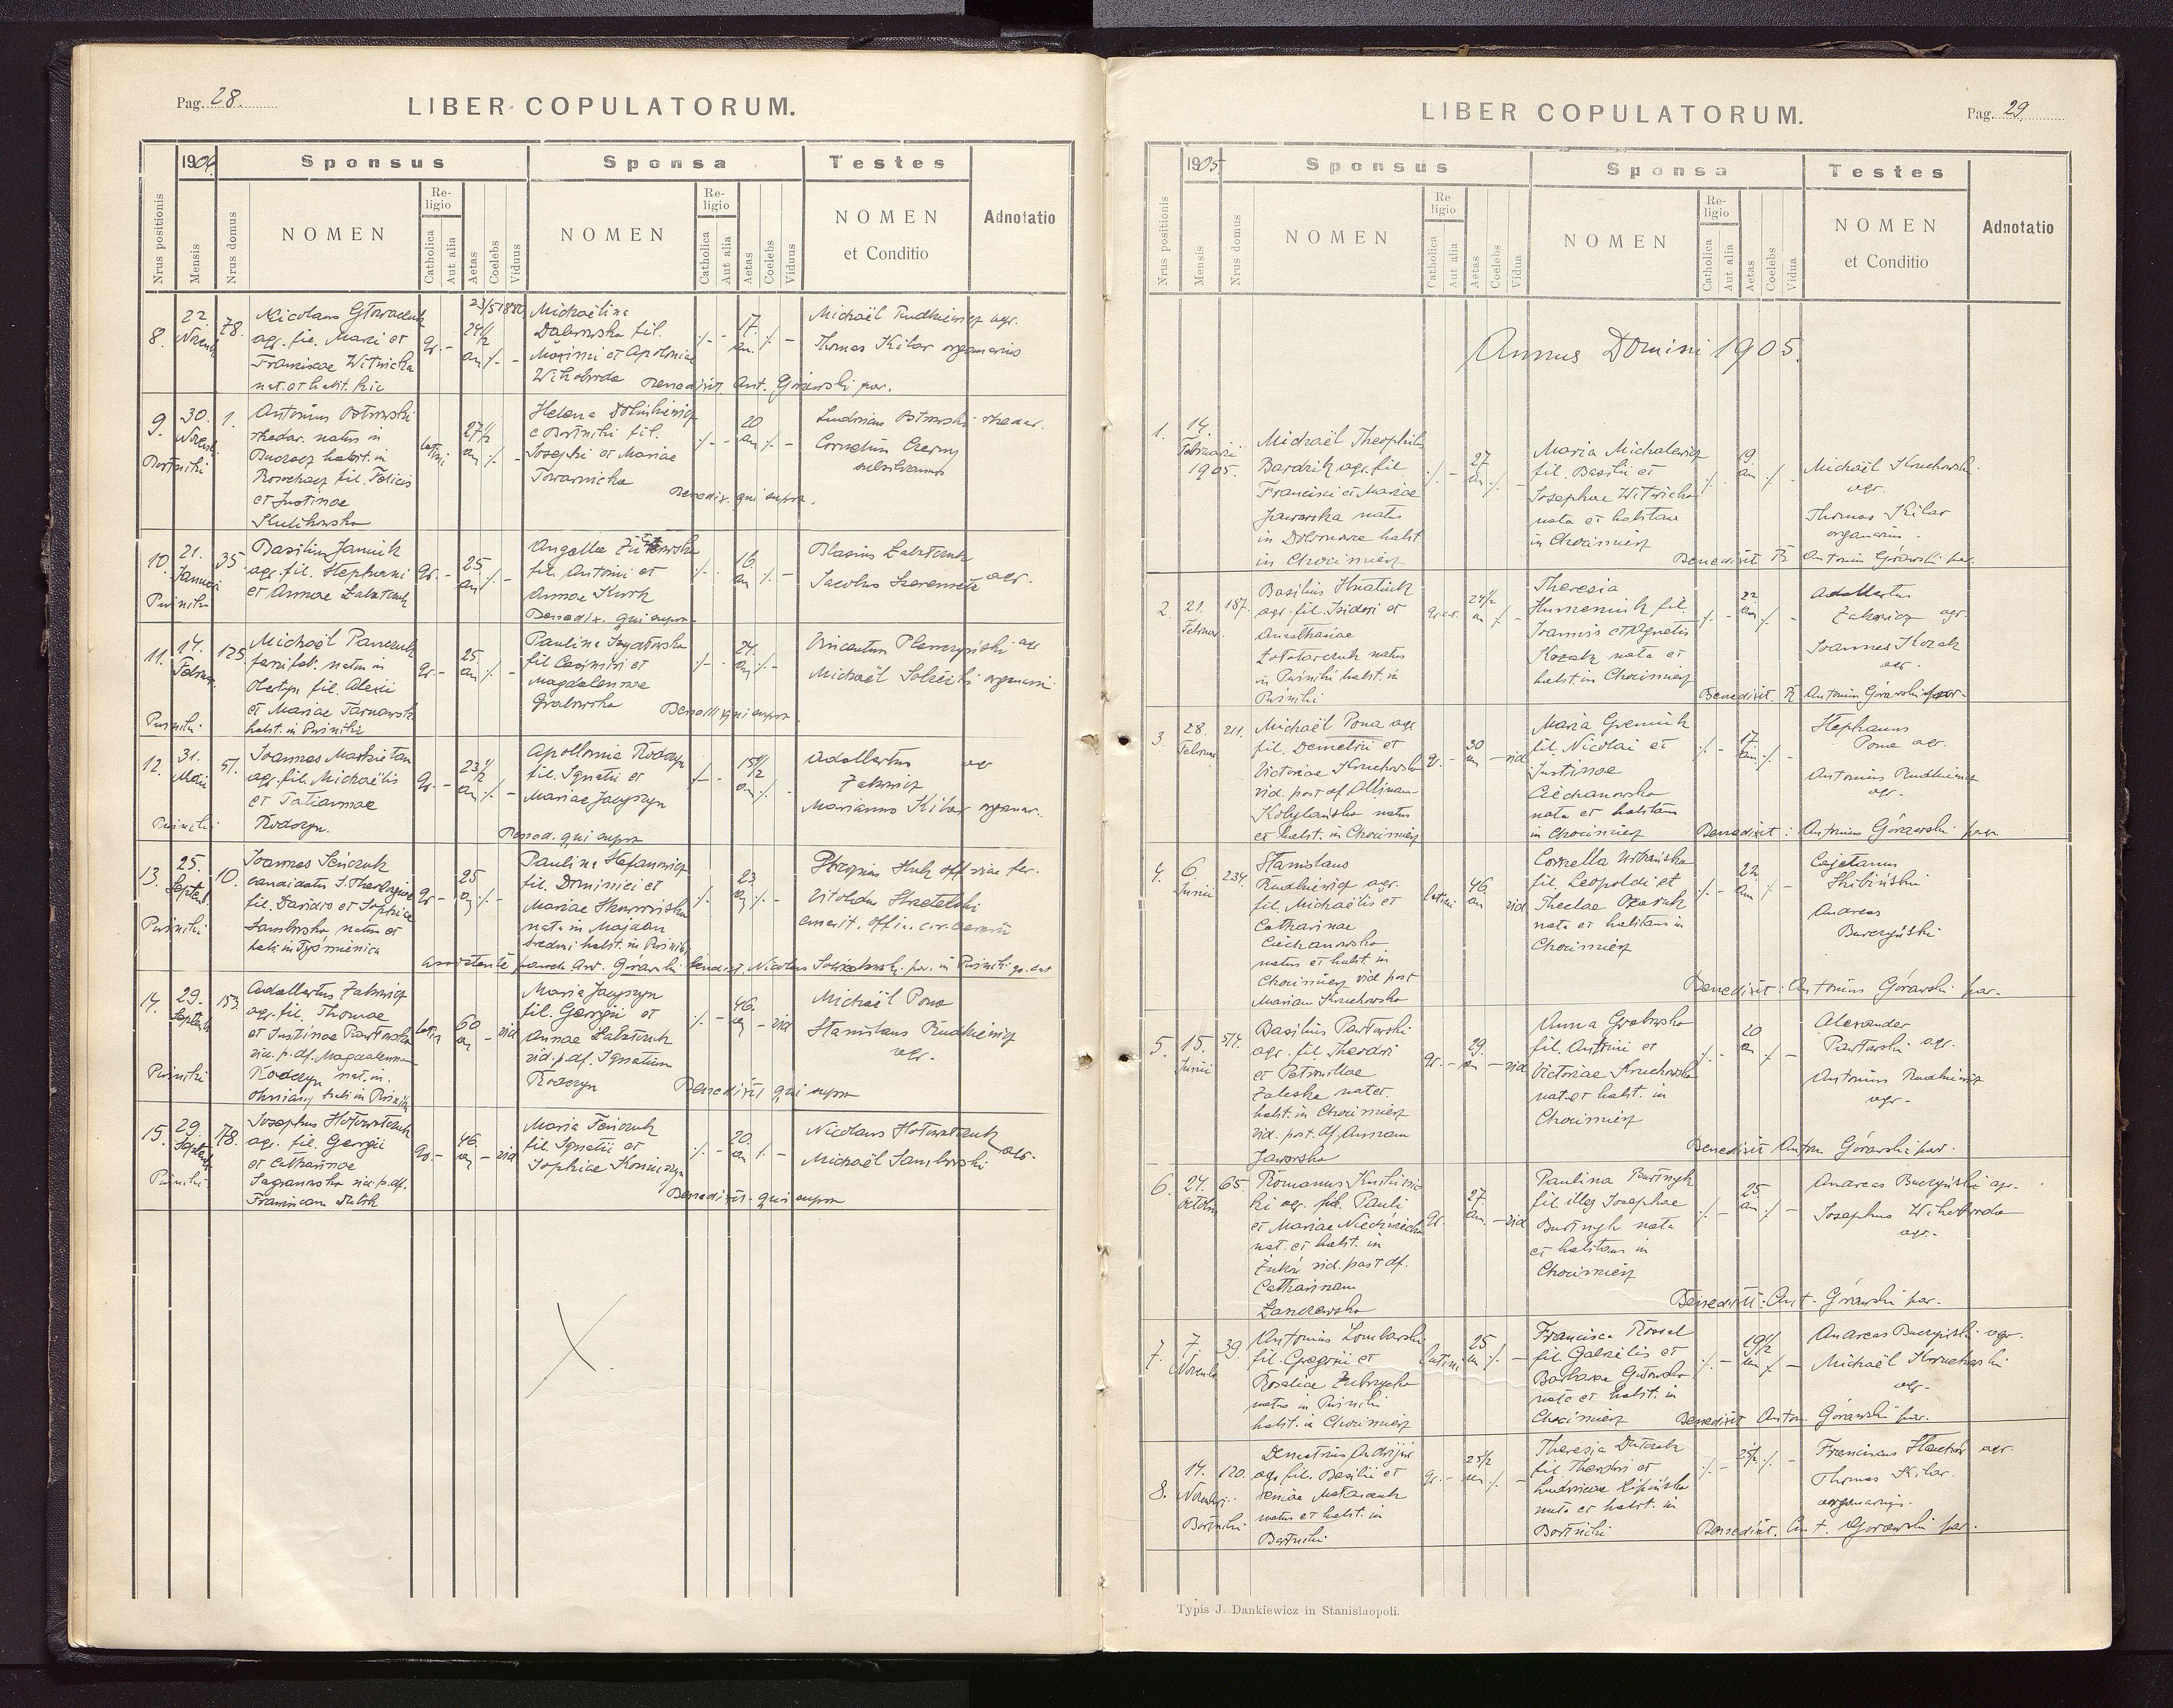 Pag. 28.
LIBER COPULATORUM.
1904.
Sponsus
Sponsa
Testes
Nrus positionis
Mensis
Nrus domus
NOMEN
Religio
Catholica
Aut alia
Aetas
Coelebs
Viduus
NOMEN
Religio
Catholica
Aut alia
Aetas
Coelebs
Viduus
NOMEN
et Conditio
Adnotatio
8.
22
78.
Nicolaus
agr. fil. Marci et
Franciscae Witwicka
nat. et habit. hic
gr.
24 1/2
an
Michaëlina
Dabrowska fil.
Maximi et Apoloniae
Wihobroda
17.
an.
Michaël Rudkiewicz agr.
Thomas Kilar organarius
Benedixit Ant. Górawski par.
9.
30.
Bortniki
1.
Antonius Ostrowski
natus in
habit. in
fil. Felicis
et Justinae
Kulikowska
27 1/2
an
Helena
e Bortniki fil.
Josephi et Mariae
Towarnicka
20
an
Ludovicus Ostrowski
Cornelius Czerny
Benedix. qui supra.
10.
21.
Januari
Puźniki
35.
Basilius Janiuk
agr. fil. Stephani
et Annae
gr.
25.
an
Angela
fil. Antonii et
Annae Kurk
16.
an
Blasius
Jacobus agr.
Benedix. qui supra
11.
14.
Puźniki
125
Michaël Panczuk
natus in
Olertyn fil. Alexii
et Mariae Tarnawska
habit. in Puźniki
gr.
25.
an
Paulina
fil. Casimiri et
Magdalenae
Grabowska
24.
an
Vincentius agr
Michaël organarii
12.
31.
Maii
Puźniki
51.
Joannes
agr. fil. Michaëlis
et Tatiannae
Kodczyn.
gr.
23 1/2
an
Apollonia Kodczyn
fil. Ignatii et
Mariae Jacyszyn
15 1/2
an
Adalbertus
agr
Marianus Kilar organar.
Bened. qui supra
13.
25.
Septemb
Puźniki
10.
Joannes Senczuk
candidatus S. Theologiae
fil. Davidis et Sophiae
Sambirska, natus et
hab. in Tyśmienica
gr.
25
an
Paulina Stefanowicz
fil. Dominici et
Mariae
nata in Majdan
średni habit. in Puźniki
23
an
Huk off. viae fer.
Vitoldus
emerit. offic.
assistente paroch Ant. Górawski
14.
29.
Septemb
Puźniki
153
Adalbertus
agr. fil. Thomae
et Justinae Pawłowska
vid. p. df. Magdalenam
Kodczyn nat. in
60
an
vid
Maria Jacyszyn
fil. Georgii et
Annae
vid. p. df. Ignatium
Kodczyn
46.
an
vid
Michaël Pona
Stanislaus Rudkiewicz
agr.
Benedixit qui supra
15.
29.
Puźniki
78.
Josephus Hołowatczuk
agr. fil. Georgii
et Catharinae
vid. p. df.
Franciscam
gr.
46.
an
vid
Maria Fenczuk
fil. Ignatii et
Sophiae
20.
an
Nicolaus Hołowatczuk
agr.
Michaël Samborski
Benedixit. qui supra
Pag. 29.
LIBER COPULATORUM.
1905.
Sponsus
Sponsa
Testes
Nrus positionis
Mensis
Nrus domus
NOMEN
Religio
Catholica
Aut alia
Aetas
Coelebs
Vidua
NOMEN
Religio
Catholica
Aut alia
Aetas
Coelebs
Vidua
NOMEN
et Conditio
Adnotatio
Annus Domini 1905.
1.
14.
Februarii
1905.
Michaël Theophilus
Bardzik agr. fil
Francisci et Mariae
Jaworska natus
in habit.
in Chocimierz
27
an.
Maria Michalewicz
fil. Basilii et
Josephae Witwicka
nata et habitans
in Chocimierz
19.
an
Michaël Kruchowski
agr.
Thomas Kilar
organarius.
Benedixit Antonius Górawski par.
2.
21.
Februar.
187.
Basilius Hnatiuk
agr. fil. Isidori et
Anasthasiae
Zołotarczuk natus
in Puźniki habit. in
Puźniki
24 1/2
an
Theresia
Humeniuk fil.
Joannis et Agnetis
Kozak nata et
habit. in Chocimierz
22
an
Adalbertus
agr.
Joannes Kozak
agr.
Benedixit Antonius Górawski par.
3.
28.
Februar
211.
Michaël Pona agr.
fil. Demetrii et
Victoriae Kruchowska
vid. post df. Albinam
Kobylańska natus
et habit. in Chocimierz
gr.
30
an
vid
Maria Gremiuk
fil. Nicolai et
Justinae
Ciechanowska
nata et habitans
in Chocimierz
17
an
Stephanus
Pona agr.
Antonius Rudkiewicz
agr.
Benedixit: Antonius Górawski par
4.
6.
Junii
234.
Stanislaus
Rudkiewicz agr.
fil. Michaëlis et
Catharinae
Ciechanowska
natus et habit. in
Chocimierz vid. post
Mariam Kruchowska
latini
46.
an
vid
Cornelia Urbańska
fil. Leopoldi et
Theclae
nata et habitans in
Chocimierz
22
an
Cajetanus
Skibiński
Andreas
Buczyński
Benedixit: Antonius Górawski par.
5.
15.
Junii
514.
Basilius Pawłowski
agr. fil. Theodori
et Petronellae
Zaleska nat et.
habit. in Chocimierz
vid. post. df. Annam
Jaworska
gr.
29.
an
vid
Anna Grabowska
fil. Antonii et
Victoriae Kruchowska
nat. et habit. in
Chocimierz
20
an
Alexander
Pawłowski agr.
Antonius Rudkiewicz
agr.
Benedixit Anton Górawski par.
6.
24.
Octobr
65.
Romanus
agr. fil. Pauli
et Mariae
nat. et habit. in
Żuków vid. post df.
Catharinam
gr.
27.
an.
vid
Paulina Burtnyk
fil. illeg. Josephae
Burtnyk nata
et habitans in
Chocimierz
25.
an
Andreas Buczyński agr.
Josephus Wihobroda
agr.
Benedixit: Ant. Górawski par.
7.
7.
39.
Antonius Lombarski
fil. Gregorii et
Rosaliae Zubrzycka
natus in Puźniki
habit. in Chocimierz
latini
25
an
Francisca
fil. Gabrielis et
Barbarae
nata et habit. in
Chocimierz
19 1/2
an
Andreas Buczyński agr.
Michaël Kruchowski
agr.
Benedixit Anton. Górawski par.
8.
14.
Bortniki
120.
Demetrius Andrijów
agr. fil. Basilii et
natus et habit. in
Bortniki
gr.
25 1/2
an
Theresia Dutczak
fil. Theodori et
Ludovicae Lipińska
nata et habit. in
Bortniki
25 1/2
Franciscus agr
Thomas Kilar.
organarius.
Benedixit. Ant. Górawski par.
Typis J. Dankiewicz in Stanislaopoli.